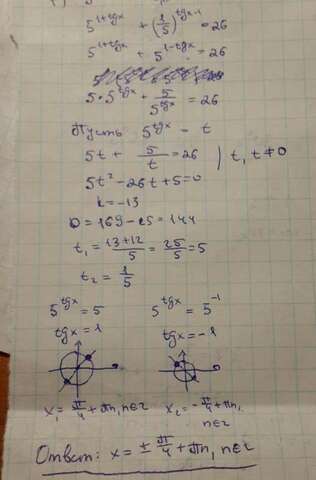 5^(1+tgx) + (1/5)^(tgx-1) = 26
5^(1+tgx) + 5^(1-tgx) = 26
5·5^(tgx) + 5/5^(tgx) = 26
Пусть 5^(tgx) = t
5t + 5/t = 26 | t, t≠0
5t² - 26t + 5 = 0
k = -13
D = 169 - 25 = 144
t₁ = (13+12)/5 = 25/5 = 5
t₂ = 1/5
5^(tgx) = 5 5^(tgx) = 5^(-1)
tgx = 1 tgx = -1
x₁ = π/4 + πn, n∈z x₂ = -π/4 + πn,
n∈z
Ответ: x = ± π/4 + πn, n∈z